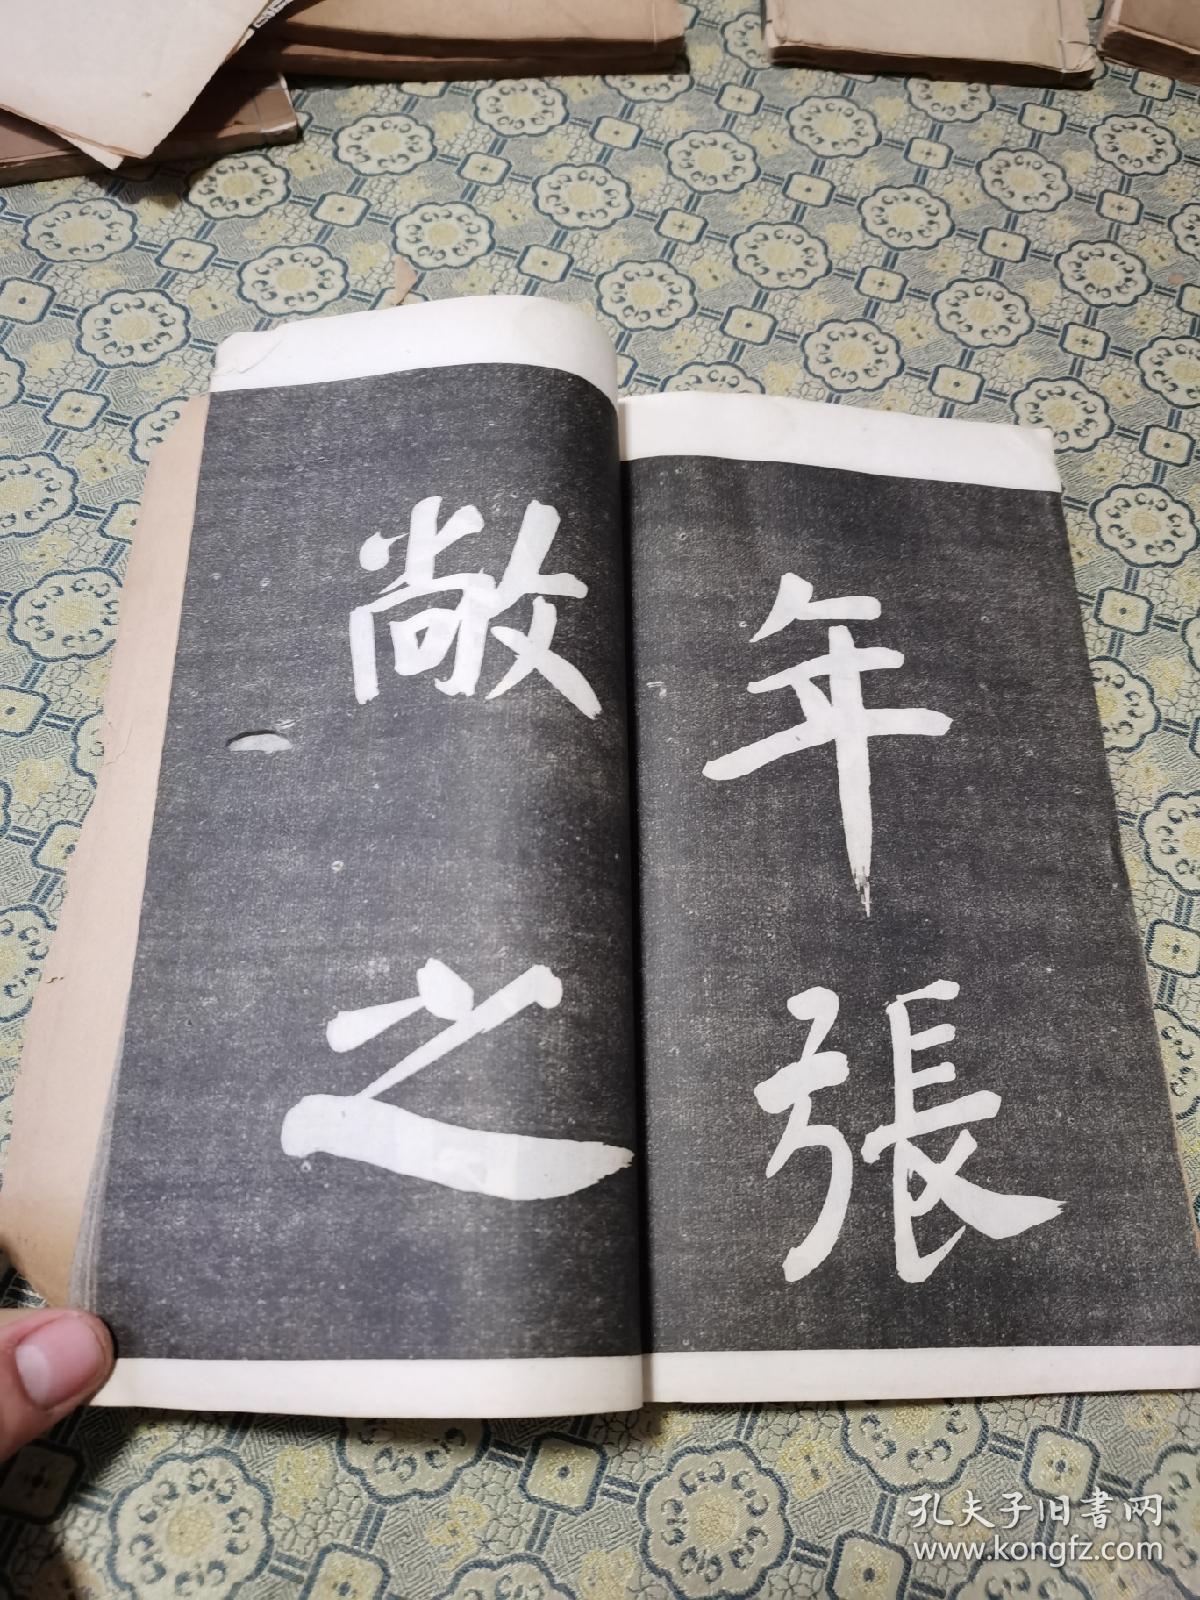 年張
敞之
孔夫子旧書网
www.kongfz.com